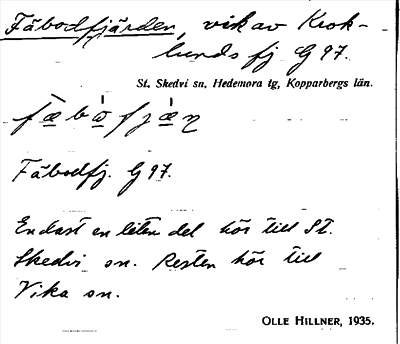 Fäbodfjärden, vik av Krok-
lunds fj G 97.
St. Skedvi sn, Hedemora tg, Kopparbergs län.
Fäbodfj. G 97.
Endast en liten del hör till St.
Skedvi sn. Resten hör till
Vika sn.
OLLE HILLNER, 1935.